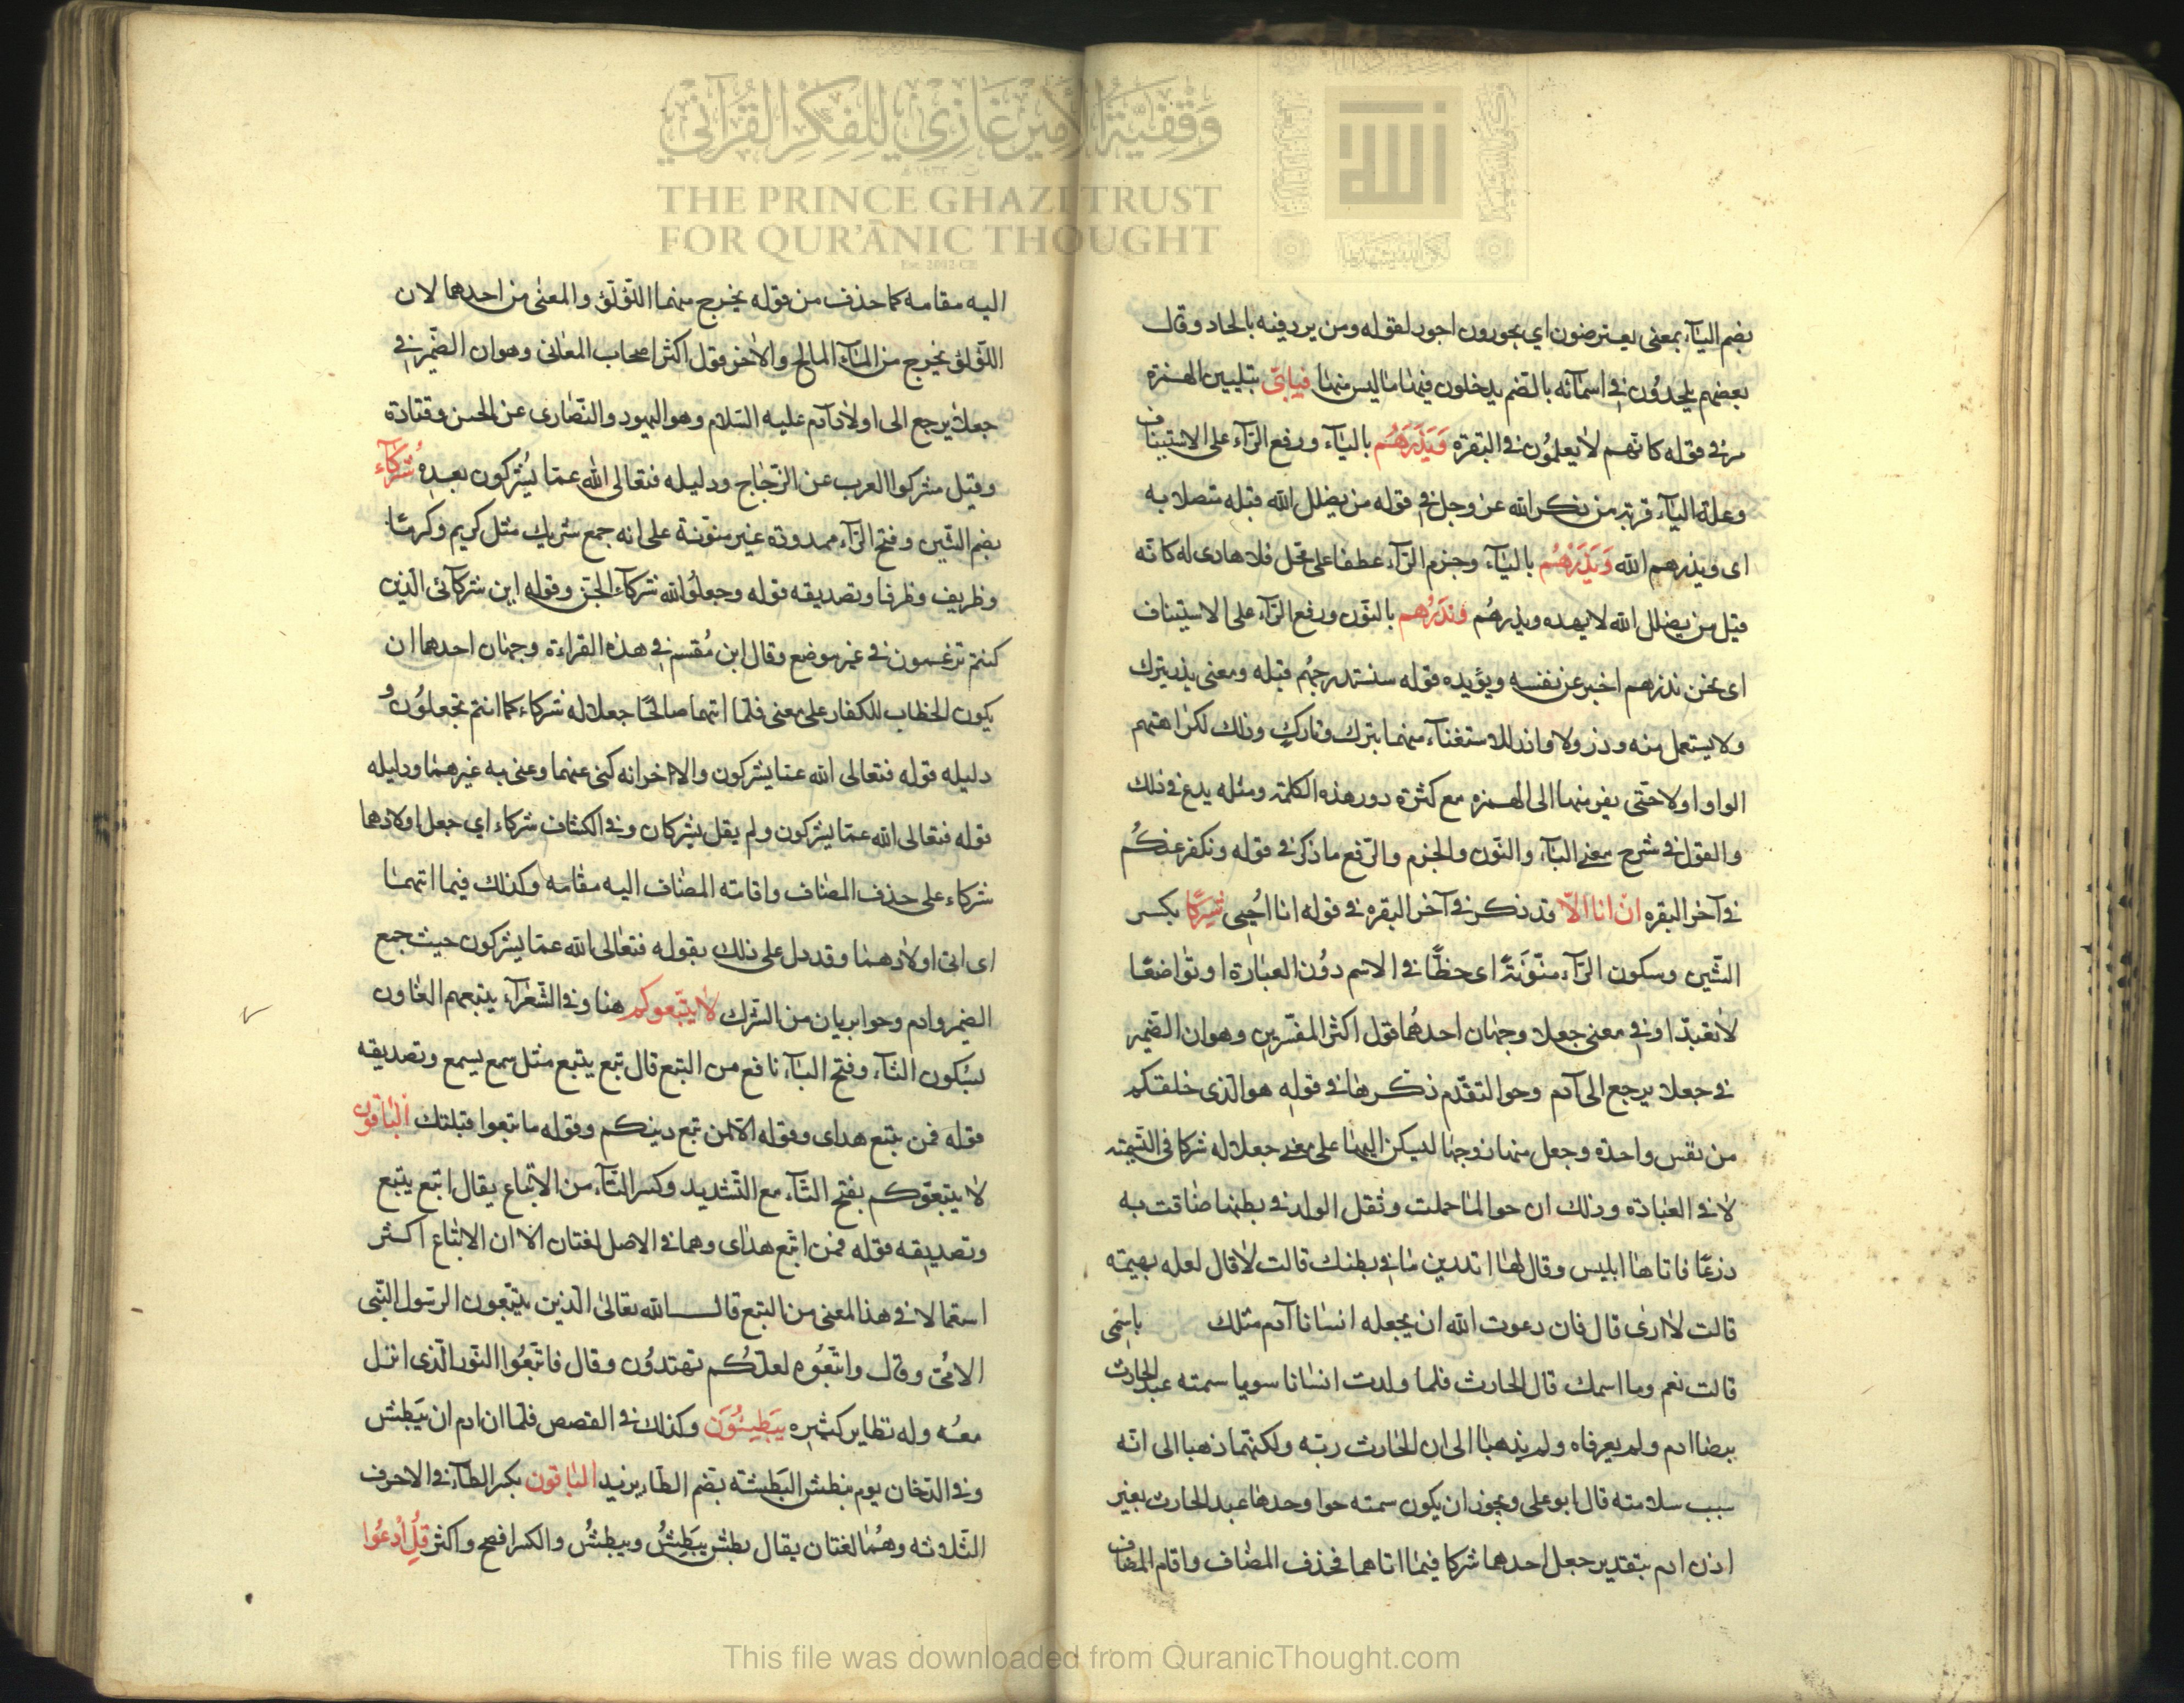 وقفية الأمير غازي للفكر القرآني
THE PRINCE GHAZI TRUST
FOR QUR'ĀNIC THOUGHT
Est. 2012 CE
بضم اليآء بمعنى يعترضون اي يجورون اجود لقوله ومن يرد فيه بالحاد وقال
بعضهم يلحدُون في اسمآئه بالضم يدخلون فيها ما ليس منها فبايّ بتليين الهمزة
مرّ في قوله كانهم لا يعلمُون في البقرة وَيَذَرُهُم باليآء ورفع الرآء على الاستيناف
وعلة اليآء قربه من ذكر الله عز وجل في قوله من يضلل الله قبله متصلا به
اى ويذرهم الله وَيَذَرْهُم باليآء وجزم الرآء عطفا على محل فلا هادى له كانه
قيل من يضلل الله لا يهده ويذرهُم ونذرُهم بالنّون ورفع الرآء على الاستيناف
اى نحن نذرهم اخبر عن نفسه ويؤيده قوله سنستدرجهُم قبله ومعنى يذر يترك
ولا يستعمل منه وذر ولا واذر للاستغنآء منهما بترك وتارك وذلك لكراهتهم
الواو اولا حتى يفر منها الى الهمزه مع كثرة دور هذه الكلمة ومثله يدع في ذلك
والقول في شرح معنى اليآء والنّون والجزم والرّفع ما ذكر في قوله ونكفر عنكُم
في آخر البقره ان انا الّا قد ذكر في آخر البقره في قوله انا اُحيى شِركًا بكسر
الشّين وسكون الرّآء منوّنَةً اى حظًّا في الاسم دوُن العبادة او تواضعًا
لا تعبدًا وفي معنى جعلا وجهان احدهُما قول اكثر المفسّرين وهو ان الضّمير
في جعلا يرجع الى آدم وحوا لتقدّم ذكرها في قوله هو الذى خلقكم
من نفس واحدة وجعل منها زوجها ليسكن اليها على معنى جعلا له شركا في التسمية
لا في العبادة وذلك ان حوا لما حملت وثقل الولد في بطنها ضاقت به
ذرعًا فاتاها ابليس وقال لها اتدرين ما في بطنك قالت لا قال لعله بهيمة
قالت لا ادرى قال فان دعوت الله ان يجعله انسانا آدم مثلك باسمى
قالت نعم وما اسمك قال الحارث فلما ولدت انسانا سويا سمته عبد الحارث
برضا ادم ولم يعرفاه ولم يذهبا الى ان الحارث ربّه ولكنهما ذهبا الى انّه
سبب سلامته قال ابو على ويجوز ان يكون سمته حوا وحدها عبد الحارث بغير
اذن ادم بتقدير جعل احدهما شركا فيما اتاهما فحذف المضاف واقام المضاف
اليه مقامه كما حذف من قوله يخرج منهما اللّؤلؤ والمعنى من احدهما لان
اللّؤلؤ يخرج من المآء المالح والاخر قول اكثر اصحاب المعانى وهو ان الضّمير في
جعلا يرجع الى اولاد آدم عليه السّلام وهو اليهود والنّصارى عن الحسن وقتادة
وقيل مشركوا العرب عن الزّجاج ودليله فتعالى الله عمّا يُشركون بعده شُركآء
بضم الشّين وفتح الرّآء ممدودة غير منوّنة على انه جمع شريك مثل كريم وكرمًا
وظريف وظرفا وتصديقه قوله وجعلوُا لله شركآء الجنّ وقوله اين شركآئى الّذين
كنتم تزعمون في غير موضع وقال ابن مُقسم في هذه القراءة وجهان احدهما ان
يكون الخطاب للكفار على معنى فلمّا اتهما صالحًا جعلا له شركاء كما انتم تجعلوُن و
دليله قوله فتعالى الله عما يشركون والاخر انه كنى عنهما وعنى به غيرهما ودليله
قوله فتعالى الله عمّا يشركون ولم يقل يشركان وفي الكشاف شركاء اي جعل اولادهما
شركاء على حذف المضاف واقامة المضاف اليه مقامه وكذلك فيما اتهما
اى اتى اولادهما وقد دل على ذلك بقوله فتعالى الله عمّا يشركون حيث جمع
الضمير وادم وحوا بريان من الشّرك لا يتّبعوكم هنا وفي الشّعرآء يتبعهم الغاون
بسكون التآء وفتح البآء نافع من التبع قال تبع يتبع مثل سمع يسمع وتصديقه
قوله فمن تبع هداى وقوله الّا لمن تبع دينكم وقوله ما تبعوا قبلتك الباقون
لا يتبعوّكم بفتح التّآء مع التّشديد وكسر البآء من الاتّباع يقال اتبع يتبع
وتصديقه قوله فمن اتّبع هداى وهما في الاصل لغتان الّا ان الاتباع اكثر
استعمالا في هذا المعنى من التبع قال الله تعالى الّذين يتّبعون الرسول النّبى
الامّى وقال واتّبعُوه لعلّكُم تهتدُون وقال فاتّبعُوا النّور الّذى انزل
معُه وله نظاير كثيره يَبطِشُوَن وكذلك في القصص فلمّا ان ادم ان يَبطش
وفي الدّخان يوم نبطش البَطشة بضم الطّاء يزيد الباقون بكسر الطّآء في الاحرف
الثّلاثه وهُما لغتان يقال بطش يبَطِشُ ويبطشُ والكسر افصح واكثر قِلُ اُدعُوا
This file was downloaded from QuranicThought.com